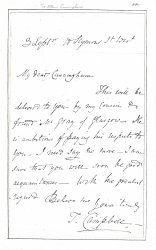 My dear Cunningham
This will be
delivered to you by my cousin Dr
Gray of Glasgow – He
is ambitious of paying his respects to
you. I need say no more – I am
sure that you will soon be good
acquaintances – With the greatest
regard Believe me yours truly
T. Campbell